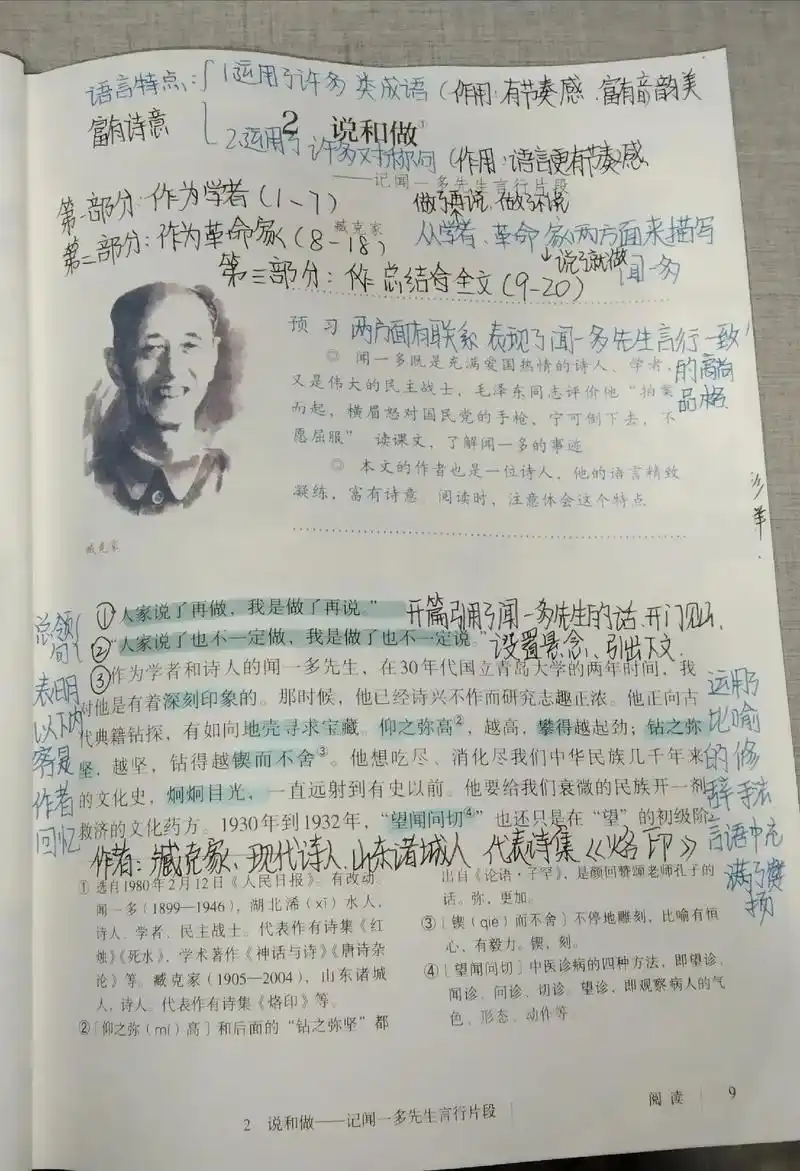 语言特点:{1.运用了许多 类成语(作用:有节奏感、富有音韵美
富有诗意
2 说和做①
2.运用了许多对称句(作用:语言更有节奏感
——记闻一多先生言行片段
第一部分:作为学者(1-7)
做了再说,做了不说
臧克家
第二部分:作为革命家(8-18)
从学者、革命家两方面来描写
闻一多
说了就做
第三部分:作总结合全文(9-20)
预习
两方面有联系 表现了闻一多先生言行一致
的高尚
品格
◎ 闻一多既是充满爱国热情的诗人、学者,
又是伟大的民主战士,毛泽东同志评价他“拍案
而起,横眉怒对国民党的手枪,宁可倒下去,不
愿屈服” 读课文,了解闻一多的事迹
◎ 本文的作者也是一位诗人,他的语言精致
凝练,富有诗意 阅读时,注意体会这个特点
臧克家
①“人家说了再做,我是做了再说。”
开篇引用了闻一多先生的话、开门见山、
②“人家说了也不一定做,我是做了也不一定说。”
设置悬念、引出下文.
总领
句
表明
以下内
容是
作者
回忆
③作为学者和诗人的闻一多先生,在30年代国立青岛大学的两年时间,我
对他是有着深刻印象的。那时候,他已经诗兴不作而研究志趣正浓。他正向古
代典籍钻探,有如向地壳寻求宝藏。仰之弥高②,越高,攀得越起劲;钻之弥
坚,越坚,钻得越锲而不舍③。他想吃尽、消化尽我们中华民族几千年来
的文化史,炯炯目光,一直远射到有史以前。他要给我们衰微的民族开一剂
救济的文化药方。1930年到1932年,“望闻问切④”也还只是在“望”的初级阶
运用了
比喻
的修
辞手法
言语中充
满了赞
扬
作者:臧克家、现代诗人.山东诸城人 代表诗集《烙印》
① 选自1980年2月12日《人民日报》。有改动。
闻一多(1899—1946),湖北浠(xī)水人,
诗人、学者、民主战士。代表作有诗集《红
烛》《死水》,学术著作《神话与诗》《唐诗杂
论》等。臧克家(1905—2004),山东诸城
人,诗人。代表作有诗集《烙印》等。
②〔仰之弥(mí)高〕和后面的“钻之弥坚”都
出自《论语·子罕》,是颜回赞颂老师孔子的
话。弥,更加。
③〔锲(qiè)而不舍〕不停地雕刻,比喻有恒
心,有毅力。锲,刻。
④〔望闻问切〕中医诊病的四种方法,即望诊、
闻诊、问诊、切诊。望诊,即观察病人的气
色、形态、动作等
2 说和做——记闻一多先生言行片段
阅读 9